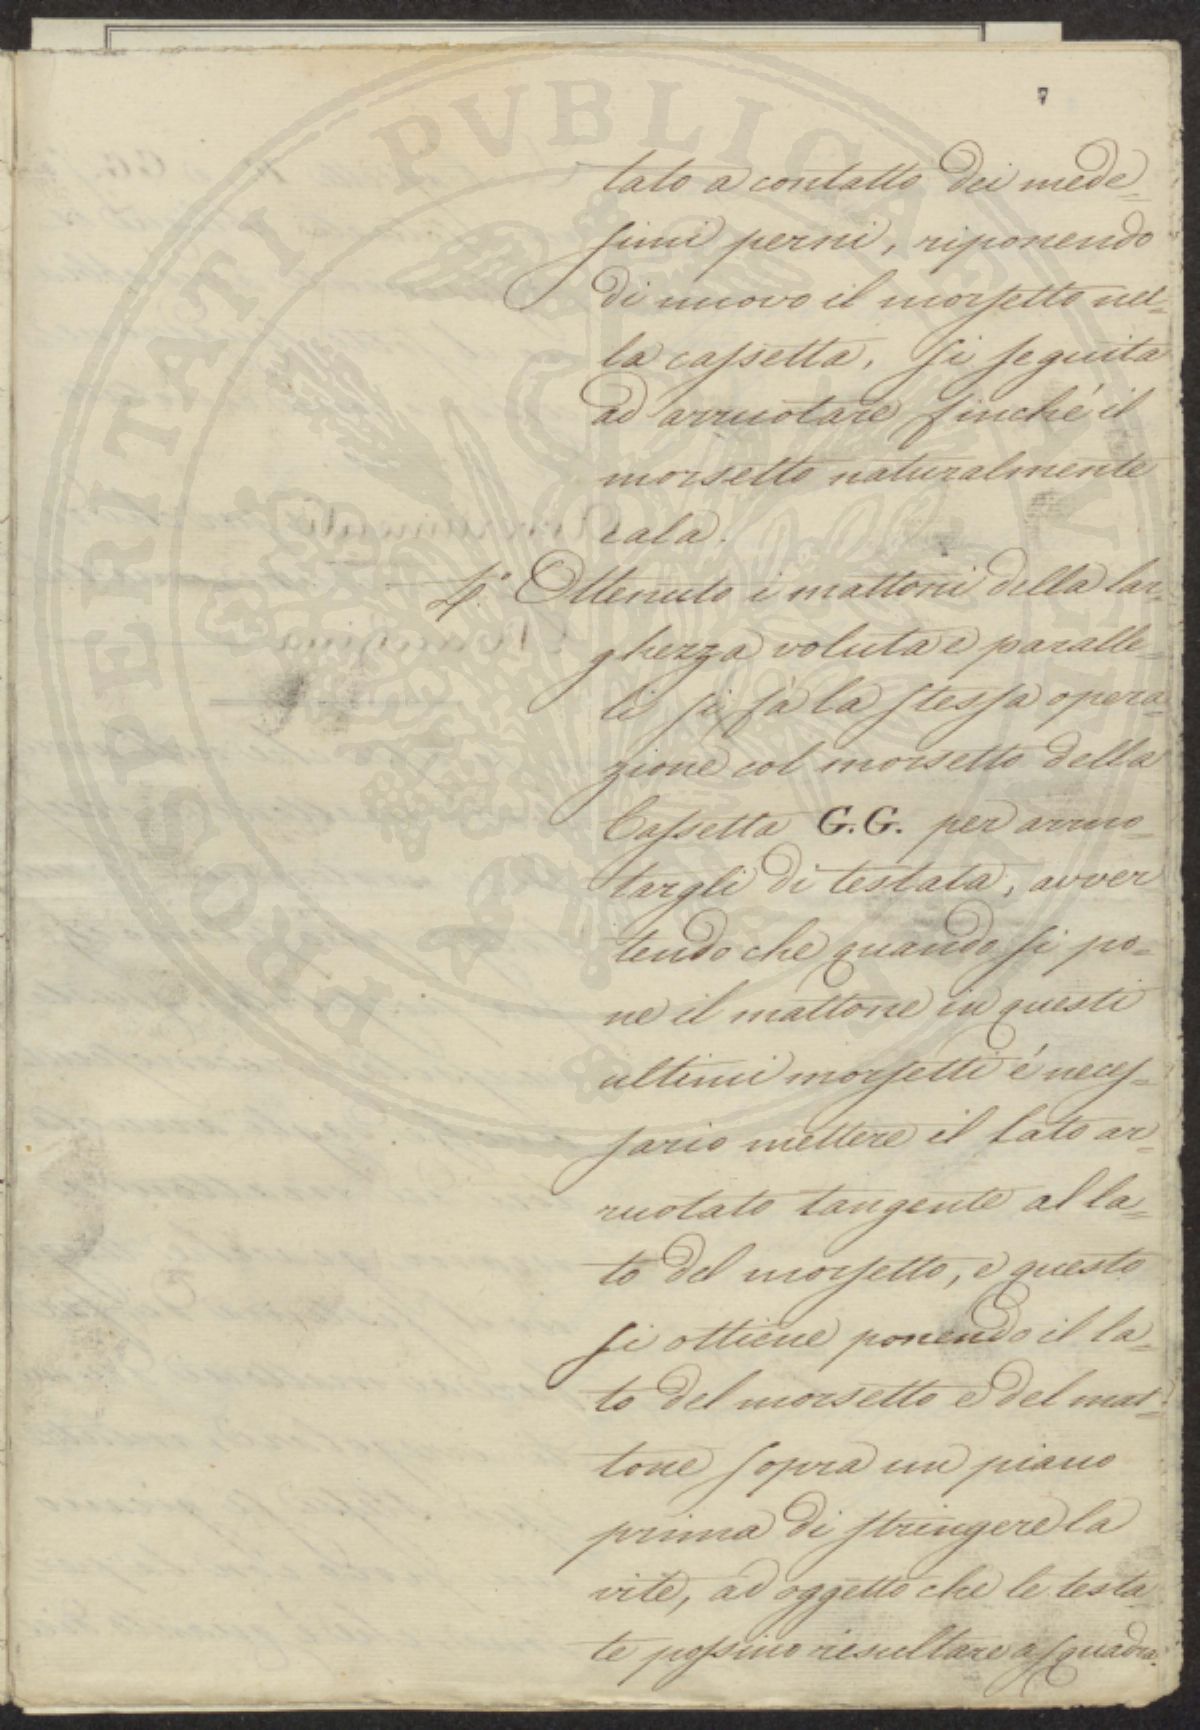 7
tato a contatto dei mede=
simi perni, riponendo
di nuovo il morsetto nel=
la cassetta, si seguita
ad arruotare finché il
morsetto naturalmente
cala.
4.° Ottenuto i mattoni della lar=
ghezza voluta e paralle=
li si fà la stessa opera=
zione col morsetto della
Cassetta G.G. per arruo=
targli di testata, avver=
tendo che quando si po=
ne il mattone in questi
ultimi morsetti é neces=
sario mettere il lato ar=
ruotato tangente al la=
to del morsetto, e questo
si ottiene ponendo il la=
to del morsetto e del mat=
tone sopra un piano
prima di stringere la
vite, ad oggetto che le testa=
te possino risultare a squadra.
PROSPERITATI PVBLICAE